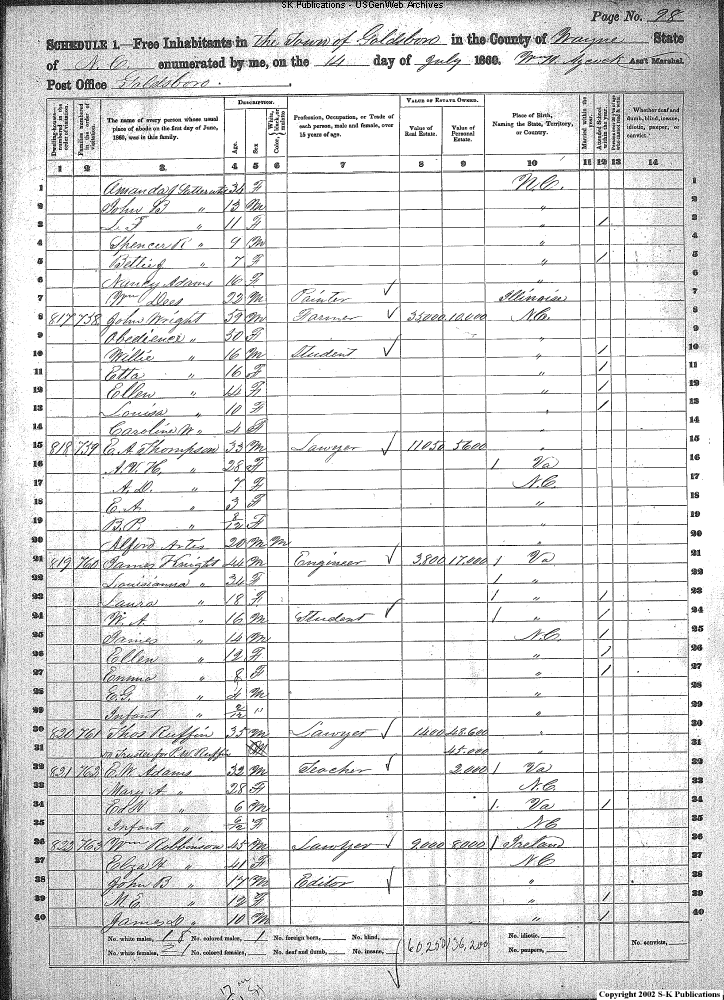 SK Publications - USGenWeb Archives
Page No. 98
SCHEDULE 1.—Free Inhabitants in The Town of Goldsboro in the County of Wayne State
of N. C. enumerated by me, on the 14 day of July 1860. Wm H. Aycock Ass't Marshal.
Post Office Goldsboro.
Dwelling-houses numbered in the order of visitation.
Families numbered in the order of visitation.
The name of every person whose usual place of abode on the first day of June, 1860, was in this family.
DESCRIPTION.
Age.
Sex
Color, White, black, or mulatto
Profession, Occupation, or Trade of each person, male and female, over 15 years of age.
VALUE OF ESTATE OWNED.
Value of Real Estate.
Value of Personal Estate.
Place of Birth, Naming the State, Territory, or Country.
Married within the year.
Attended School within the year.
Whether deaf and dumb, blind, insane, idiotic, pauper, or convict.
1 2 3 4 5 6 7 8 9 10 11 12 13 14
1 Amanda 34 F N.C. 1
2 John B " 13 M " 2
3 L. F " 11 F " / 3
4 Spencer R " 9 M " 4
5 " 7 F " / 5
6 Nancy Adams 16 F " 6
7 Wm Dees 22 M Painter ✓ Illinois 7
8 817 758 John Wright 39 M Farmer ✓ 33000 10000 N.C. 8
9 Obedience " 30 F 9
10 Willie " 16 M Student ✓ " / 10
11 Etta " 16 F " / 11
12 Ellen " 14 F " / 12
13 Louisa " 10 F " / 13
14 Caroline W " 4 F 14
15 818 759 E. A. Thompson 33 M Lawyer ✓ 11050 5600 " 15
16 A. V. H. " 28 F / Va 16
17 A. D. " 7 F N.C. 17
18 E. A. " 3 F " 18
19 B. P. " 8/12 F " 19
20 Alford Artis 20 M M " 20
21 819 760 James Knight 44 M Engineer ✓ 3,800 17,000 / Va 21
22 Louisianna " 34 F / " 22
23 Laura " 18 F / " / 23
24 W. A. " 16 M Student ✓ / " / 24
25 James " 14 M N.C. / 25
26 Ellen " 12 F " / 26
27 Emma " 8 F " / 27
28 E. G. " 4 M " 28
29 Infant " 2/12 " " 29
30 820 761 Thos Ruffin 35 M Lawyer ✓ 1400 48,600 " 30
31 as Trustee for P. W. Ruffin 45,000 31
32 821 762 E. W. Adams 32 M Teacher ✓ 2,000 / Va 32
33 Mary A " 28 F N.C. 33
34 Ed W " 6 M / Va / 34
35 Infant " 6/12 F N.C. 35
36 822 763 Wm Robbinson 45 M Lawyer ✓ 2000 8000 / Ireland 36
37 Eliza " 41 F N.C. 37
38 John B " 17 M Editor ✓ " 38
39 M. E. " 12 F " / 39
40 James " 10 M " / 40
No. white males, 18 No. colored males, 1 No. foreign born, No. blind, No. idiotic,
No. white females, 21 No. colored females, No. deaf and dumb, No. insane, 60,250 136,200 No. paupers, No. convicts,
Copyright 2002 S-K Publications